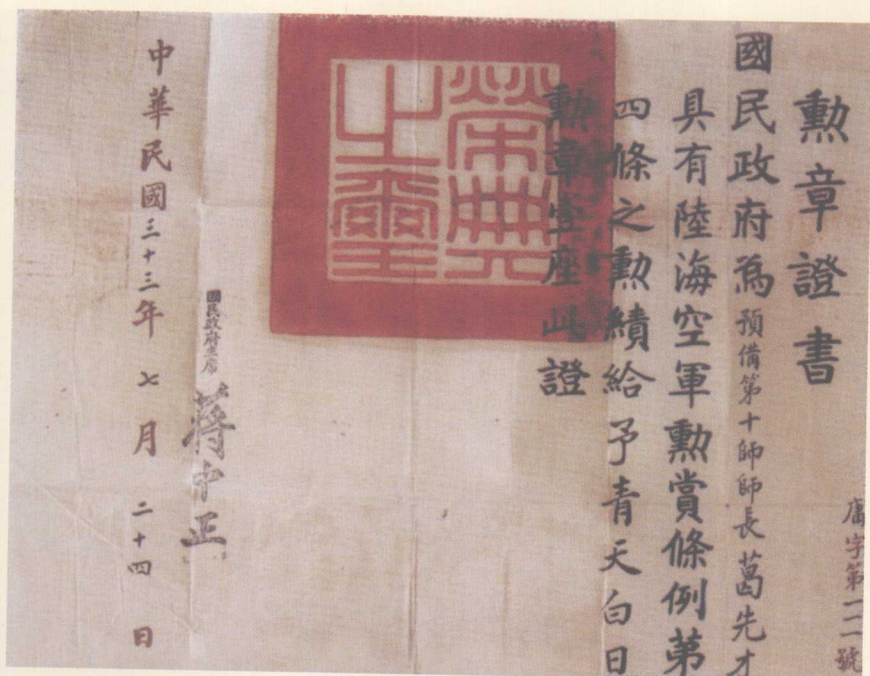 勳章證書
國民政府為預備第十師師長葛先才
具有陸海空軍勳賞條例第
四條之勳績給予青天白日
勳章壹座此證
字第一二一號
國民政府主席 蔣中正
中華民國三十三年七月二十四日
榮典之璽